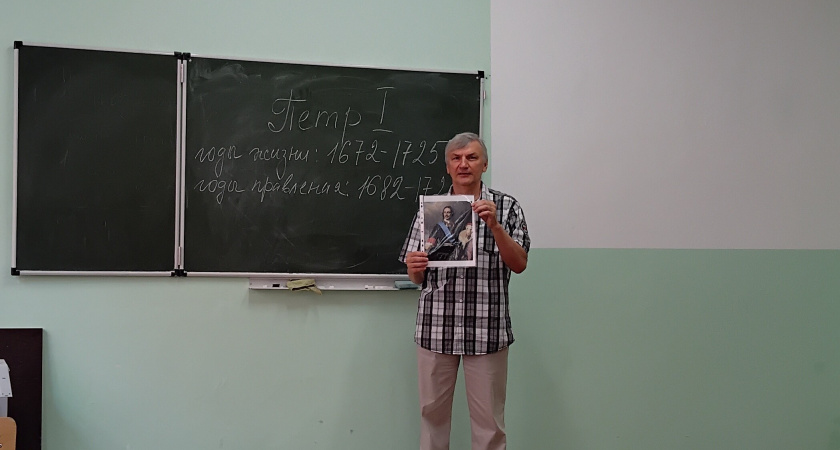 Петр I
годы жизни: 1672-1725
годы правления: 1682-172